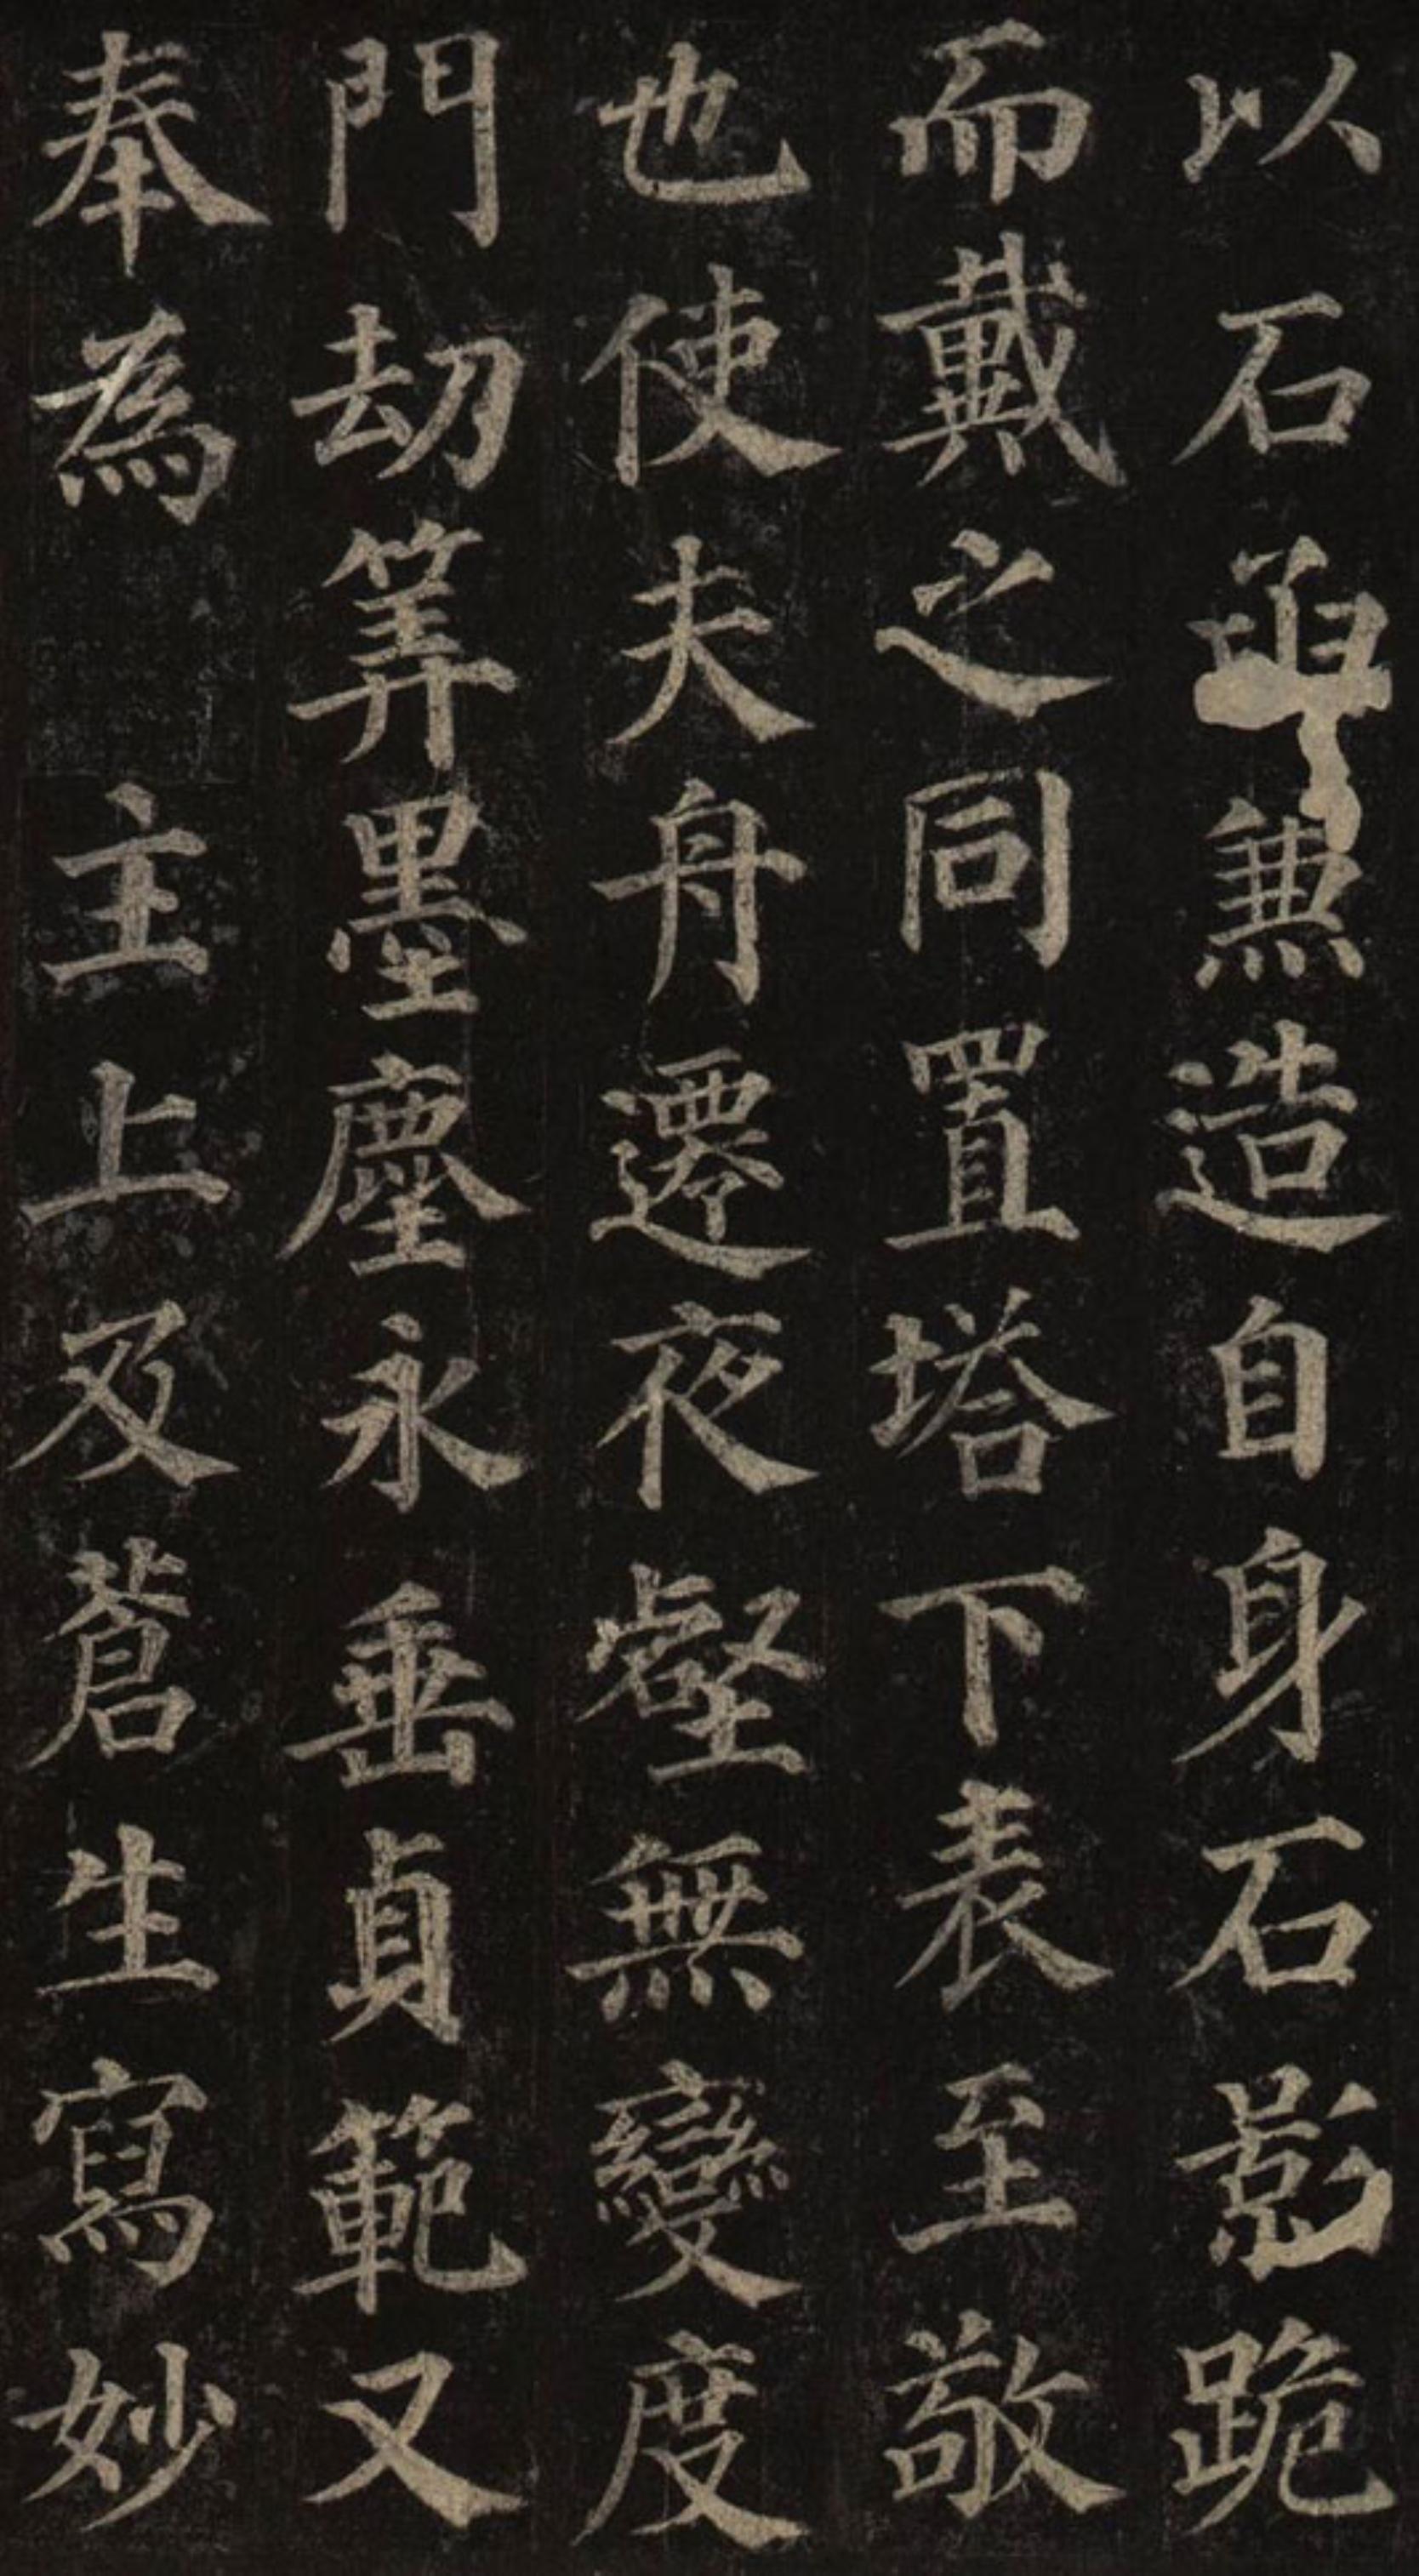 以石函兼造自身石影跪
而戴之同置塔下表至敬
也使夫舟遷夜壑無變度
門劫筭墨塵永垂貞範又
奉為 主上及蒼生寫妙